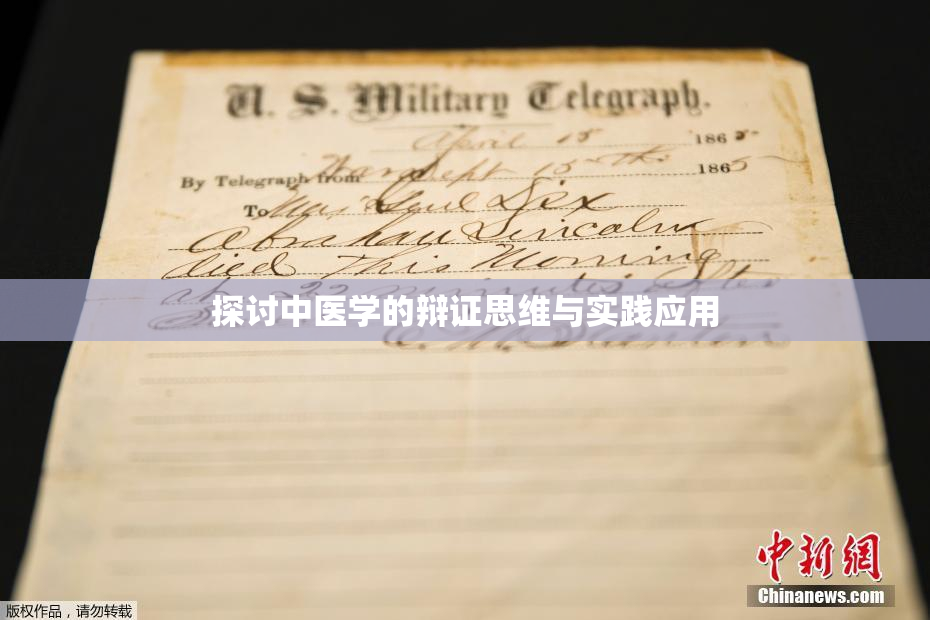 U. S. Military Telegraph.
April 15 1865
By Telegraph from War Dept 15th 1865
To Maj Genl Dix
Abraham Lincoln
died This Morning
at 22 minutes after
探讨中医学的辩证思维与实践应用
中新网
Chinanews.com
版权作品，请勿转载